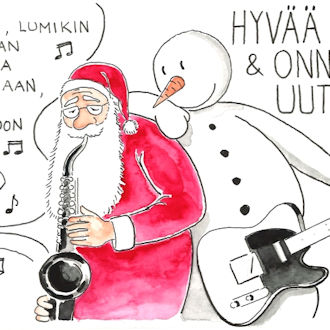 , LUMIKIN
AN
A
AAN,
OON
HYVÄÄ
& ONN
UUT